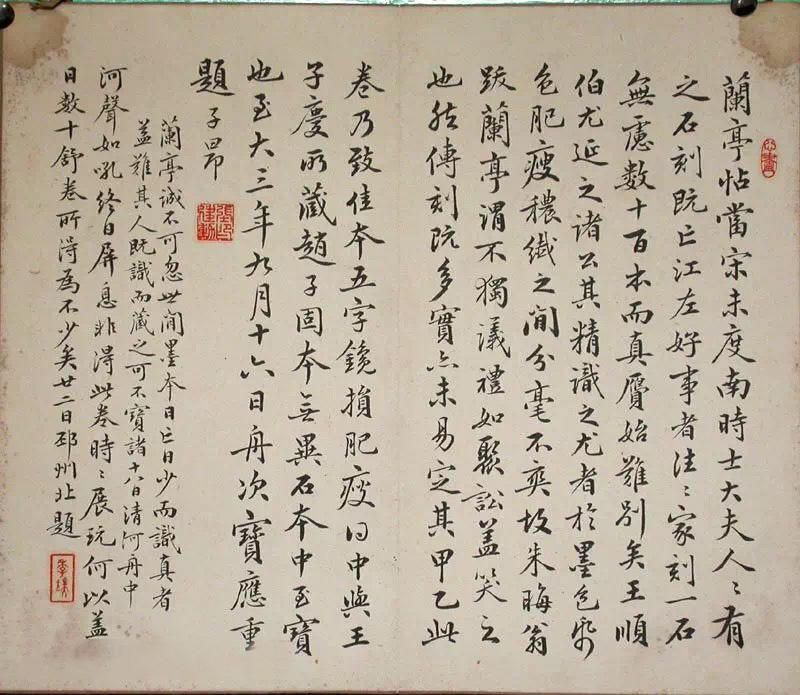 蘭亭帖當宋未度南時士大夫人〻有
之石刻既亡江左好事者往〻家刻一石
無慮數十百本而真贋始難別矣王順
伯尤延之諸公其精識之尤者於墨色紙
色肥瘦穠纖之間分毫不爽故朱晦翁
跋蘭亭謂不獨議禮如聚訟盖笑之
也然傳刻既多實亦未易定其甲乙此
卷乃致佳本五字鑱損肥瘦得中與王
子慶所藏趙子固本無異石本中至寶
也至大三年九月十六日舟次寶應重
題子昂
蘭亭誠不可忽世間墨本日亡日少而識真者
盖難其人既識而藏之可不寶諸十八日清河舟中
河聲如吼終日屏息非得此卷時〻展玩何以盖
日數十舒卷所得為不少矣廿二日邳州北題